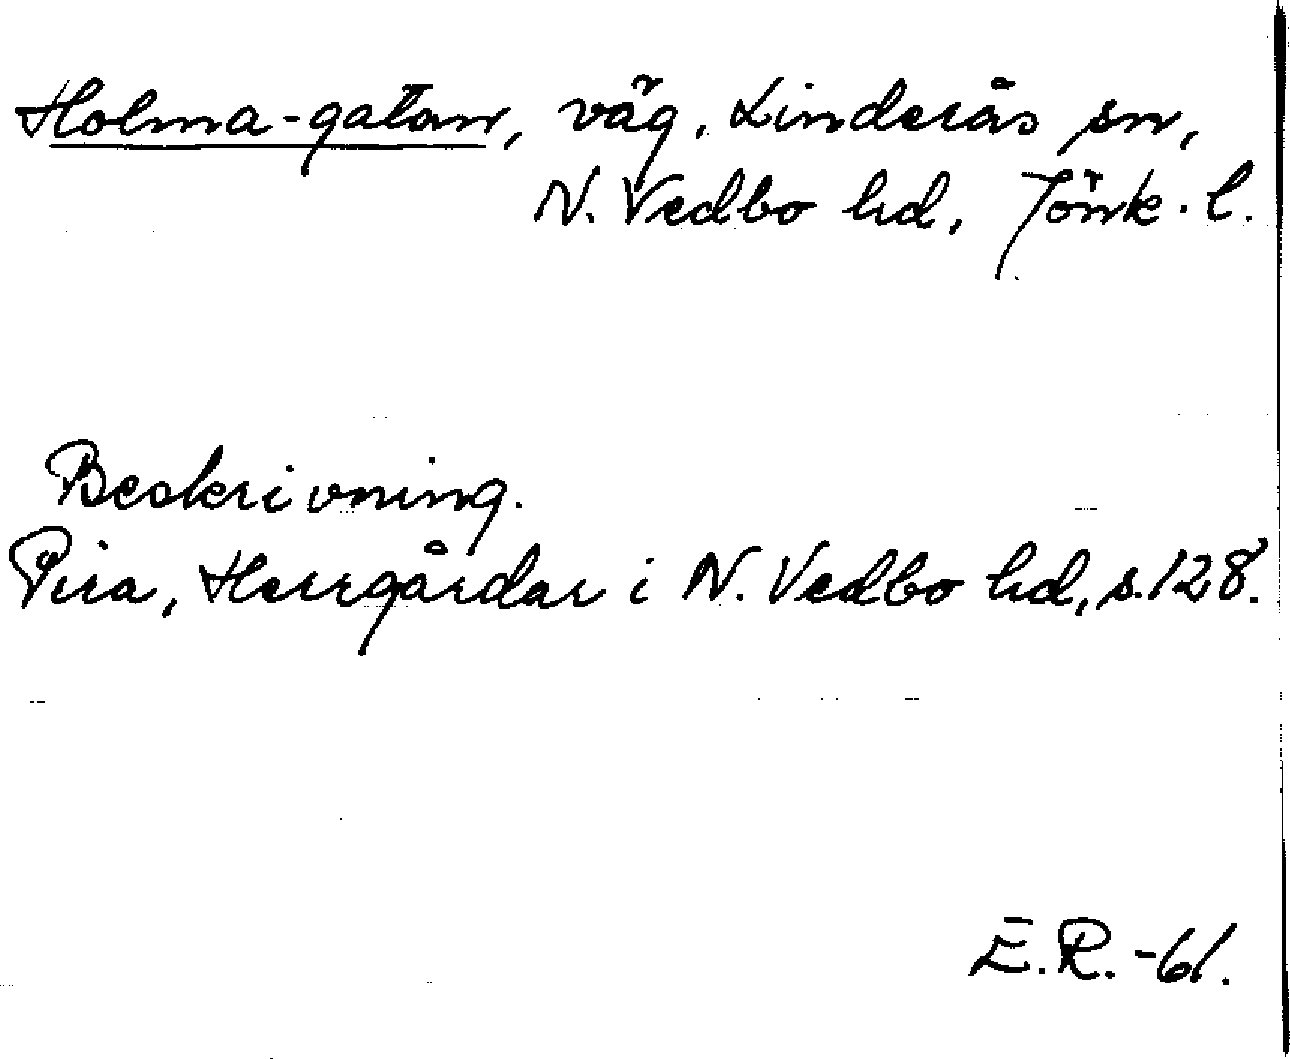 Holma-gatan, väg, Linderås sn,
N. Vedbo hd, Jönk. l.
Beskrivning.
Pira, Herrgårdar i N. Vedbo hd, s. 128.
E.R. -61.